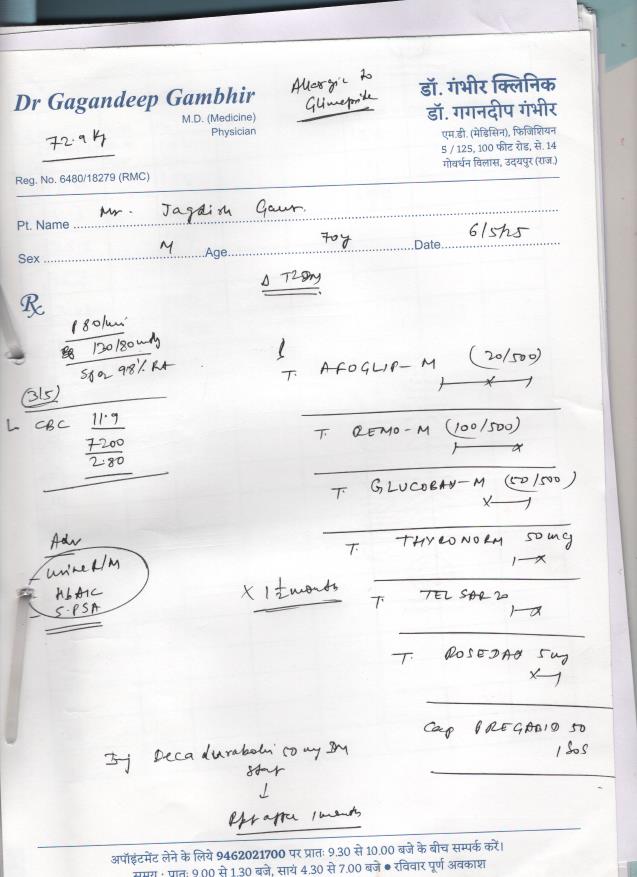 Allergic to
Glimepride
Dr Gagandeep Gambhir
M.D. (Medicine)
Physician
72.9 Kg
Reg. No. 6480/18279 (RMC)
डॉ. गंभीर क्लिनिक
डॉ. गगनदीप गंभीर
एम.डी. (मेडिसिन), फिजिशियन
5 / 125, 100 फीट रोड, से. 14
गोवर्धन विलास, उदयपुर (राज.)
Pt. Name Mr. Jagdish Gaur.
Sex M Age 70y Date 6/5/25
Δ T2DM
Rx
P 80/min
130/80 mmHg
SpO2 98% RA
(3/5)
CBC 11.9
7200
2.80
Adv
- Urine R/M
HbA1C
- S. PSA
T. AFOGLIP-M (20/500)
T. REMO-M (100/500)
T. GLUCOBAY-M (50/500)
T. THYRONORM 50 mcg
T. TELSAR 20
T. ROSEDAY 5 mg
x 1½ months
Cap PREGABID 50
1 SOS
Inj Decadurabolin 50 mg IM
stat
↓
Rpt after 1 month
अपॉइंटमेंट लेने के लिये 9462021700 पर प्रातः 9.30 से 10.00 बजे के बीच सम्पर्क करें।
समय : प्रातः 9.00 से 1.30 बजे, सायं 4.30 से 7.00 बजे ● रविवार पूर्ण अवकाश